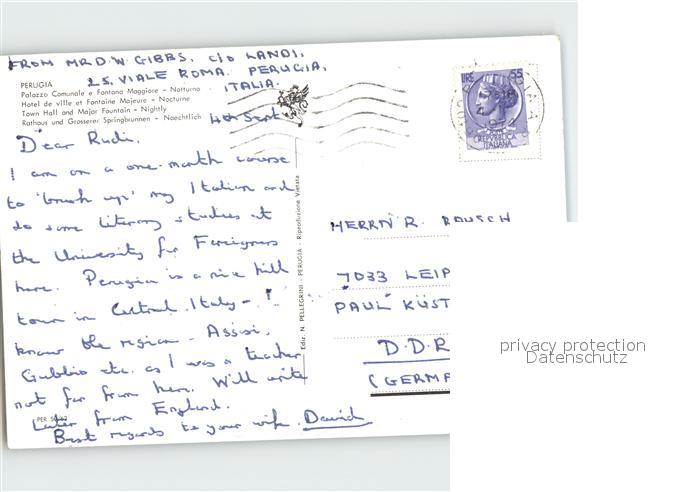 FROM MR D.W. GIBBS. c/o LANDI.
25. VIALE ROMA. PERUGIA.
ITALIA.
PERUGIA
Palazzo Comunale e Fontana Maggiore - Notturno
Hotel de ville et Fontaine Majeure - Nocturne
Town Hall and Major Fountain - Nightly
Rathaus und Grosserer Springbrunnen - Naechtlich
4th Sept.
Dear Rudi,
I am on a one-month course
to 'brush up' my Italian and
do some literary studies at
the University for Foreigners
here. Perugia is a nice hill
town in Central Italy - I
know the region - Assisi,
Gubbio etc. as I was a teacher
not far from here. Will write
Later from England.
Best regards to your wife. David
PER
Ediz. N. PELLEGRINI - PERUGIA - Riproduzione Vietata
LIRE 55
REPVBBLICA
ITALIANA
HERRN R. RAUSCH
7033 LEIP
PAUL KÜST
D.D.R
(GERMA
privacy protection
Datenschutz